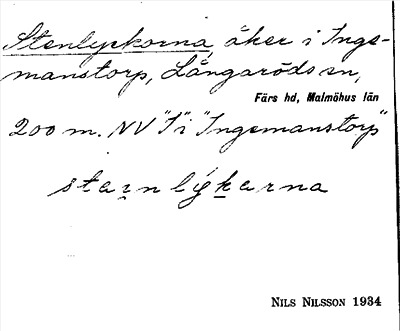 Stenlyckorna, åker i Inge-
manstorp, Långaröds sn,
Färs hd, Malmöhus län
200 m. NV "I" i "Ingemanstorp"
stai̯nlýk̲arna
NILS NILSSON 1934